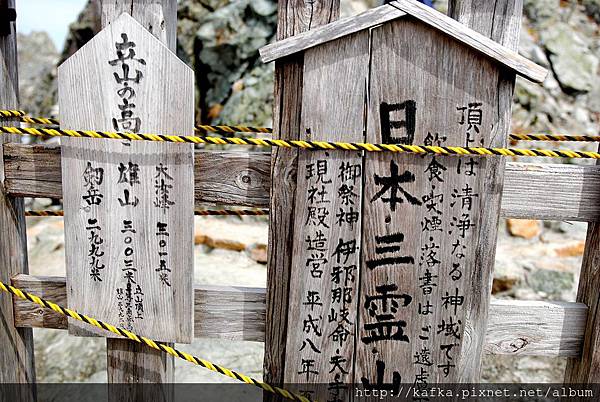 立山の高
大汝峰 三〇一五米
雄山 三〇〇三米
劔岳 二九九九米
頂上は清浄なる神域です
飲食・喫煙・落書はご遠慮
日本三霊山
御祭神 伊邪那岐命 天手
現社殿造営 平成八年
http://kafka.pixnet.net/album